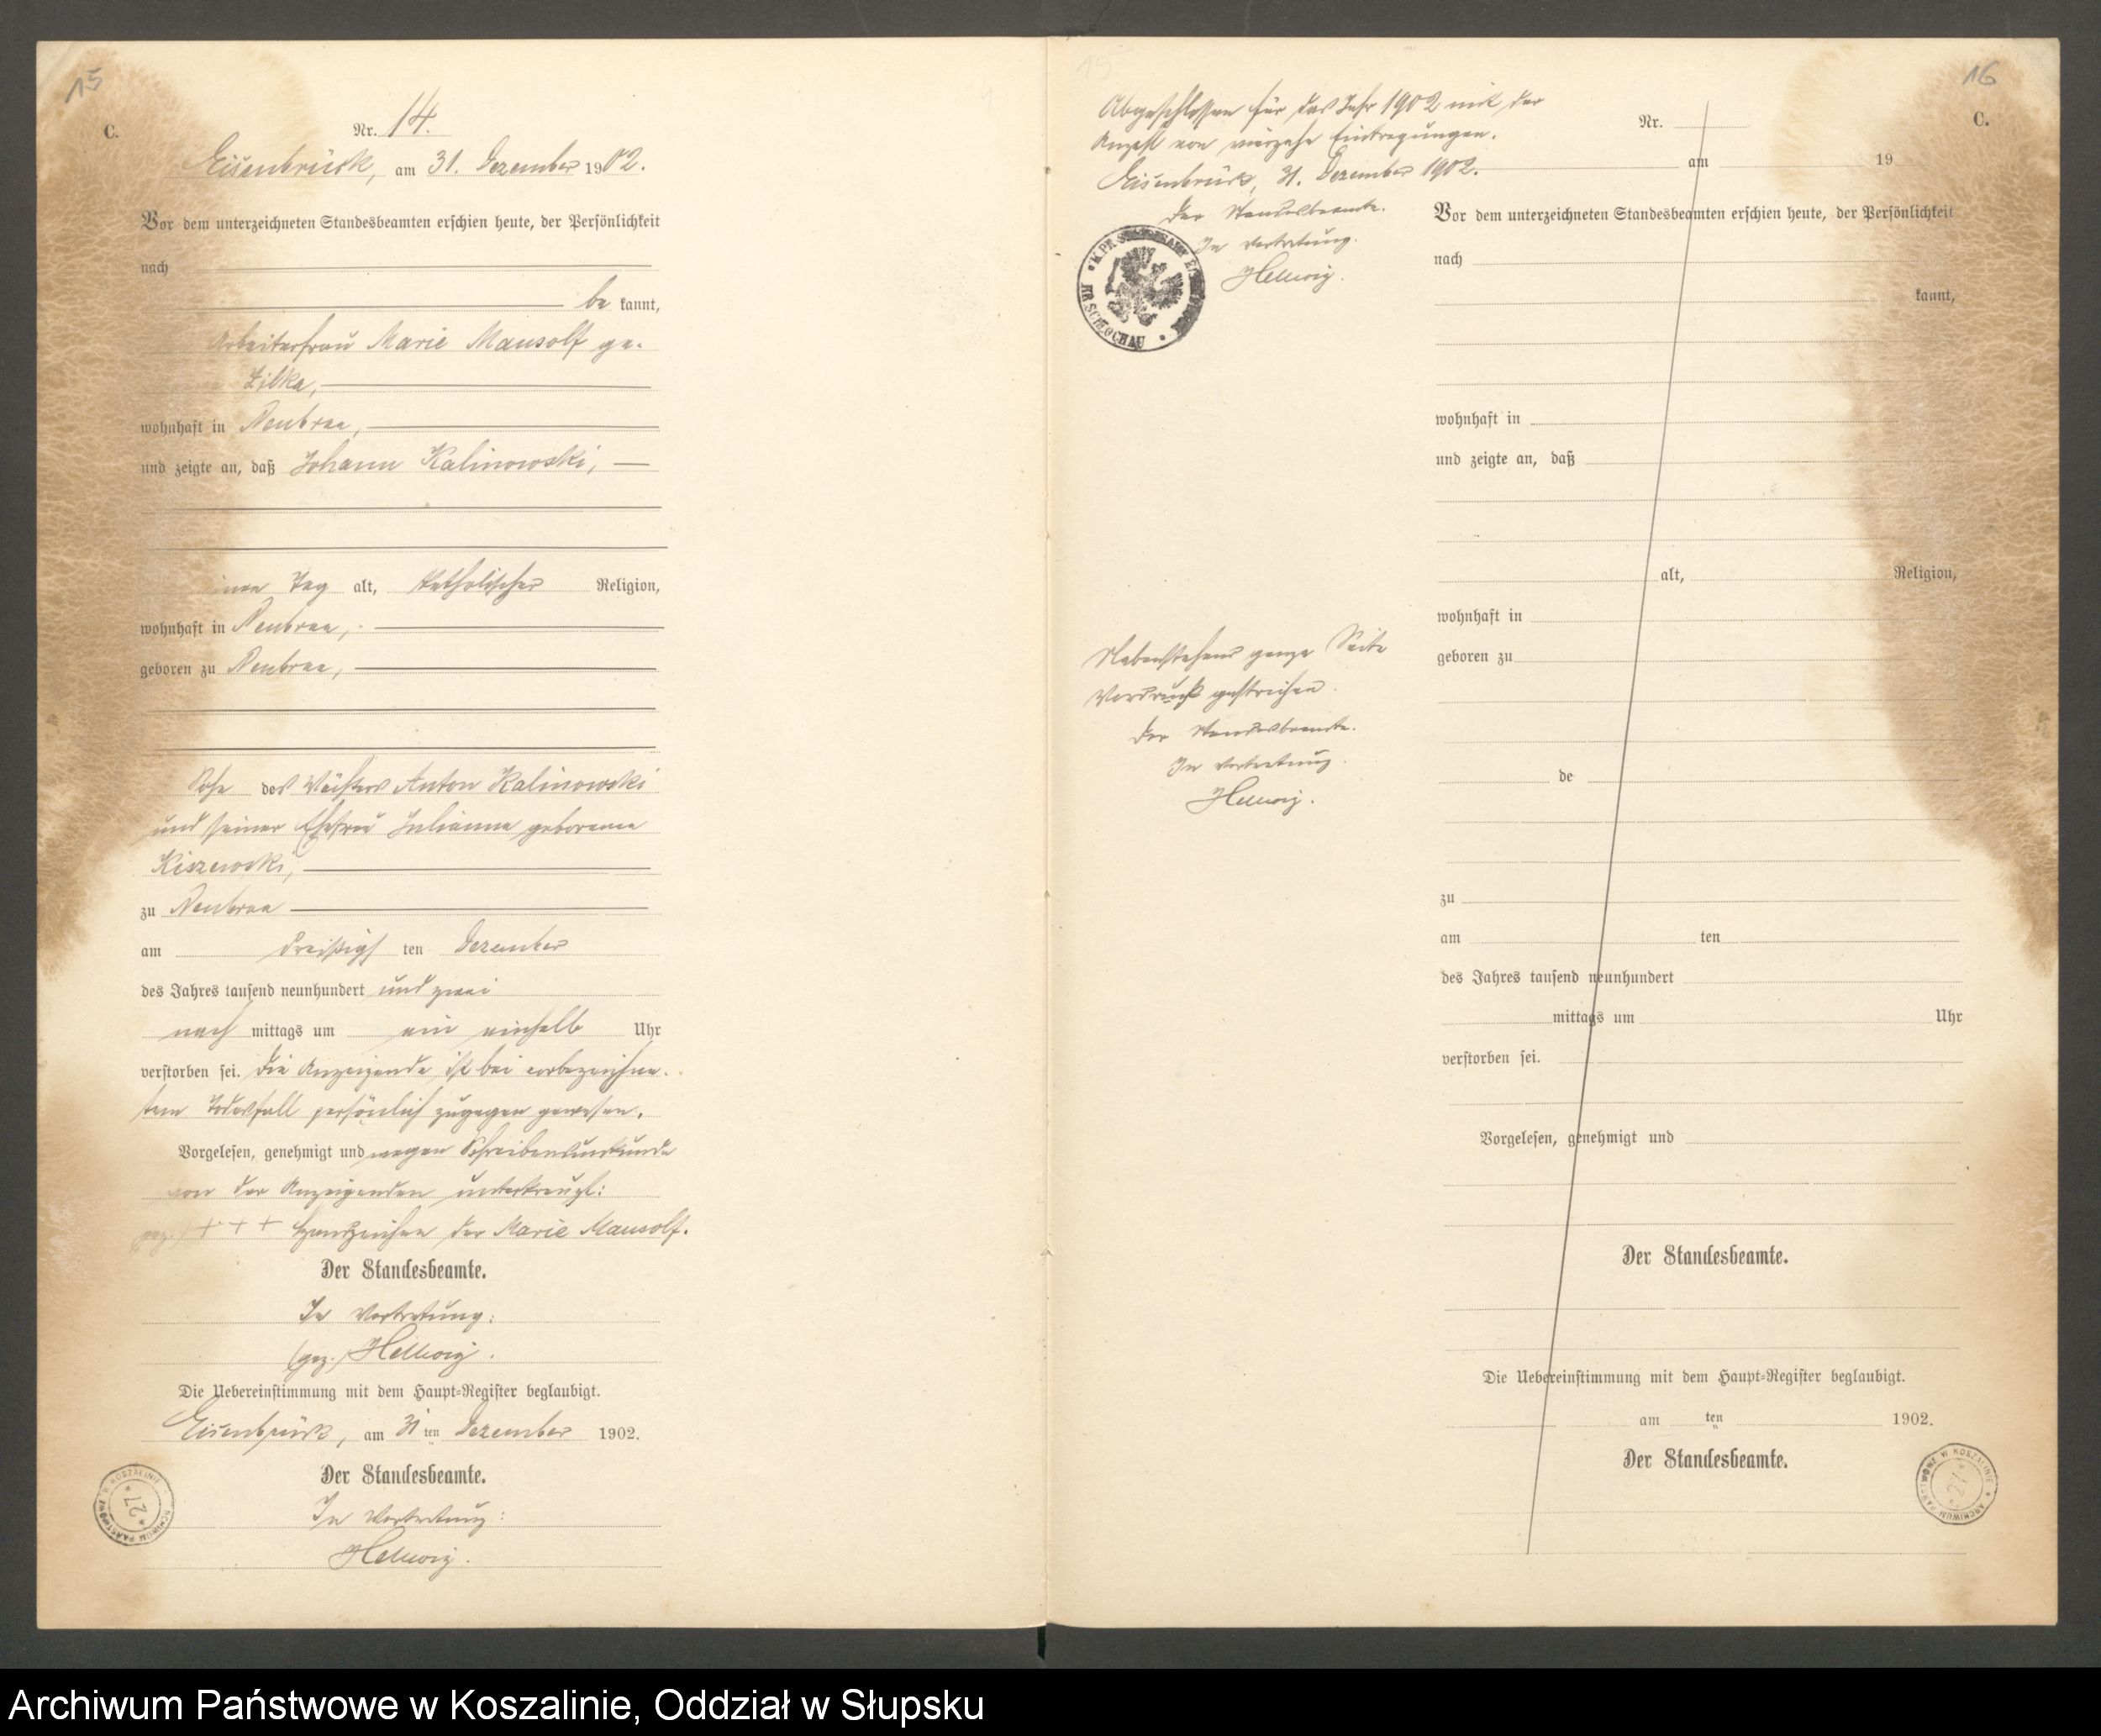 15
C.
Nr. 14.
Eisenbrück, am 31. Dezember 1902.
Vor dem unterzeichneten Standesbeamten erschien heute, der Persönlichkeit
nach
be kannt,
Arbeiterfrau Marie Mausolf ge-
Zilka,
wohnhaft in Neubraa,
und zeigte an, daß Johann Kalinowski,
Tag alt, katholischer Religion,
wohnhaft in Neubraa,
geboren zu Neubraa,
Sohn des Wächters Anton Kalinowski
und seiner Ehefrau Julianna geborenen
Kiszewski,
zu Neubraa
am dreißigs ten Dezember
des Jahres tausend neunhundert und zwei
nach mittags um ein einhalb Uhr
verstorben sei. Die Anzeigende ist bei vorbezeichne-
tem Todesfall persönlich zugegen gewesen.
Vorgelesen, genehmigt und wegen Schreibensunkunde
von der Anzeigenden unterkreuzt:
gez.) + + + Handzeichen der Marie Mausolf.
Der Standesbeamte.
In Vertretung:
(gez.) Hellwig.
Die Uebereinstimmung mit dem Haupt-Register beglaubigt.
Eisenbrück, am 31 ten Dezember 1902.
Der Standesbeamte.
In Vertretung:
Hellwig.
ARCHIWUM PAŃSTWOWE W KOSZALINIE * 27 *
15
Abgeschlossen für das Jahr 1902 mit der
Anzahl von vierzehn Eintragungen.
Eisenbrück, 31. Dezember 1902.
Der Standesbeamte.
In Vertretung.
Hellwig.
KR. SCHLOCHAU
Nebenstehend ganze Seite
Vordruck gestrichen.
Der Standesbeamte.
In Vertretung.
Hellwig.
16
C.
Nr.
am 19
Vor dem unterzeichneten Standesbeamten erschien heute, der Persönlichkeit
nach
kannt,
wohnhaft in
und zeigte an, daß
alt, Religion,
wohnhaft in
geboren zu
de
zu
am ten
des Jahres tausend neunhundert
mittags um Uhr
verstorben sei.
Vorgelesen, genehmigt und
Der Standesbeamte.
Die Uebereinstimmung mit dem Haupt-Register beglaubigt.
am ten 1902.
Der Standesbeamte.
ARCHIWUM PAŃSTWOWE W KOSZALINIE * 27 *
Archiwum Państwowe w Koszalinie, Oddział w Słupsku